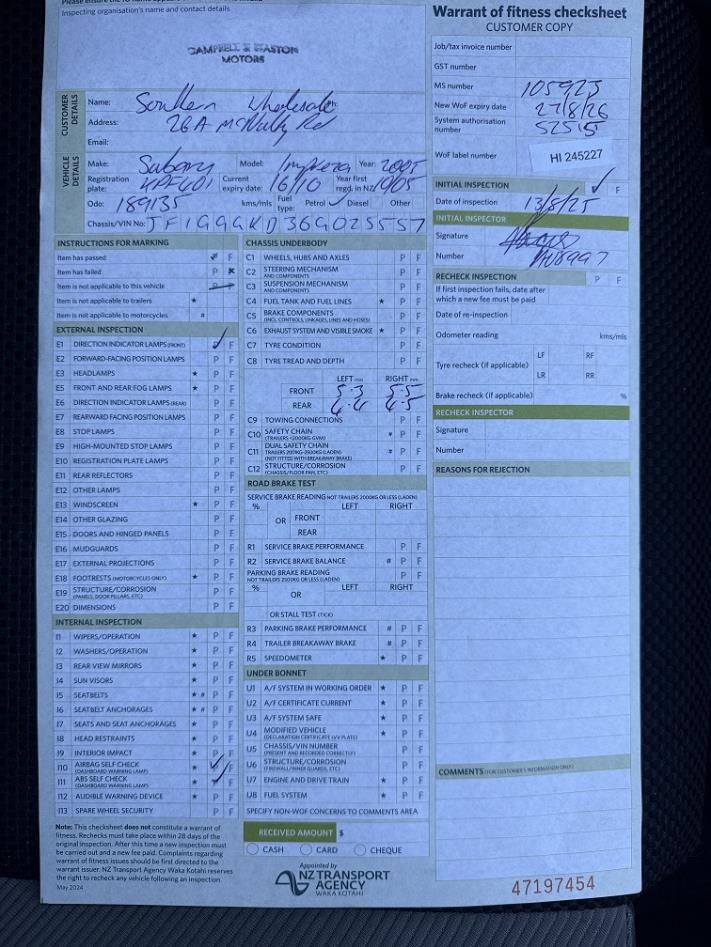 Inspecting organisation's name and contact details
CAMPBELL & WASTON
MOTORS
Warrant of fitness checksheet
CUSTOMER COPY
Job/tax invoice number
GST number
MS number 105923
New WoF expiry date 27/8/26
System authorisation number 52515
WoF label number HI 245227
CUSTOMER DETAILS
Name: Southern Wholesale Ph:
Address: 26A McNulty Rd
Email:
VEHICLE DETAILS
Make: Subaru Model: Impreza Year: 2005
Registration plate: Current expiry date: 16/10 Year first regd. in NZ: 10/05
Odo: 189135 kms/mls Fuel type: Petrol ✓ Diesel Other
Chassis/VIN No: JF1GGGKD36G025557
INITIAL INSPECTION ✓ F
Date of inspection 13/8/25
INITIAL INSPECTOR
Signature
Number
RECHECK INSPECTION P F
If first inspection fails, date after
which a new fee must be paid
Date of re-inspection
Odometer reading kms/mls
Tyre recheck (if applicable) LF RF
LR RR
Brake recheck (if applicable) %
RECHECK INSPECTOR
Signature
Number
REASONS FOR REJECTION
COMMENTS (FOR CUSTOMER'S INFORMATION ONLY)
47197454
INSTRUCTIONS FOR MARKING
Item has passed ✓ F
Item has failed P ✗
Item is not applicable to this vehicle P F
Item is not applicable to trailers *
Item is not applicable to motorcycles #
EXTERNAL INSPECTION
E1 DIRECTION INDICATOR LAMPS (FRONT) ✓ F
E2 FORWARD-FACING POSITION LAMPS P F
E3 HEADLAMPS * P F
E5 FRONT AND REAR FOG LAMPS * P F
E6 DIRECTION INDICATOR LAMPS (REAR) P F
E7 REARWARD FACING POSITION LAMPS P F
E8 STOP LAMPS P F
E9 HIGH-MOUNTED STOP LAMPS P F
E10 REGISTRATION PLATE LAMPS P F
E11 REAR REFLECTORS P F
E12 OTHER LAMPS P F
E13 WINDSCREEN * P F
E14 OTHER GLAZING P F
E15 DOORS AND HINGED PANELS P F
E16 MUDGUARDS P F
E17 EXTERNAL PROJECTIONS P F
E18 FOOTRESTS (MOTORCYCLES ONLY) * P F
E19 STRUCTURE/CORROSION (PANELS, DOOR PILLARS, ETC) P F
E20 DIMENSIONS P F
INTERNAL INSPECTION
I1 WIPERS/OPERATION * P F
I2 WASHERS/OPERATION * P F
I3 REAR VIEW MIRRORS * P F
I4 SUN VISORS * P F
I5 SEATBELTS * # P F
I6 SEATBELT ANCHORAGES * # P F
I7 SEATS AND SEAT ANCHORAGES * P F
I8 HEAD RESTRAINTS * P F
I9 INTERIOR IMPACT * P F
I10 AIRBAG SELF CHECK (DASHBOARD WARNING LAMP) * ✓ F
I11 ABS SELF CHECK (DASHBOARD WARNING LAMP) * ✓ F
I12 AUDIBLE WARNING DEVICE * P F
I13 SPARE WHEEL SECURITY P F
Note: This checksheet does not constitute a warrant of
fitness. Rechecks must take place within 28 days of the
original inspection. After this time a new inspection
must be carried out and a new fee paid. Complaints regarding
warrant of fitness issues should be first directed to the
warrant issuer. NZ Transport Agency Waka Kotahi reserves
the right to recheck any vehicle following an inspection.
May 2024
CHASSIS UNDERBODY
C1 WHEELS, HUBS AND AXLES P F
C2 STEERING MECHANISM AND COMPONENTS P F
C3 SUSPENSION MECHANISM AND COMPONENTS P F
C4 FUEL TANK AND FUEL LINES * P F
C5 BRAKE COMPONENTS (INCL CONTROLS, LINKAGES, LINES AND HOSES) P F
C6 EXHAUST SYSTEM AND VISIBLE SMOKE * P F
C7 TYRE CONDITION P F
C8 TYRE TREAD AND DEPTH P F
LEFT mm RIGHT mm
FRONT 5.3 5.5
REAR 4.4 4.5
C9 TOWING CONNECTIONS P F
C10 SAFETY CHAIN (TRAILERS <2000KG GVM) # P F
C11 DUAL SAFETY CHAIN TRAILERS 2001KG-3500KG (LADEN) (NOT FITTED WITH BREAKAWAY BRAKE) # P F
C12 STRUCTURE/CORROSION (CHASSIS/FLOOR PAN, ETC) P F
ROAD BRAKE TEST
SERVICE BRAKE READING NOT TRAILERS 2000KG OR LESS (LADEN)
% LEFT RIGHT
OR FRONT
REAR
R1 SERVICE BRAKE PERFORMANCE P F
R2 SERVICE BRAKE BALANCE # P F
PARKING BRAKE READING P F
NOT TRAILERS 2500KG OR LESS (LADEN)
% LEFT RIGHT
OR
OR STALL TEST (TICK)
R3 PARKING BRAKE PERFORMANCE # P F
R4 TRAILER BREAKAWAY BRAKE # P F
R5 SPEEDOMETER * P F
UNDER BONNET
U1 A/F SYSTEM IN WORKING ORDER * P F
U2 A/F CERTIFICATE CURRENT * P F
U3 A/F SYSTEM SAFE * P F
U4 MODIFIED VEHICLE (DECLARATION CERTIFICATE LVV PLATE) * P F
U5 CHASSIS/VIN NUMBER (PRESENT AND RECORDED CORRECTLY) P F
U6 STRUCTURE/CORROSION (FIREWALL/INNER GUARDS, ETC) P F
U7 ENGINE AND DRIVE TRAIN * P F
U8 FUEL SYSTEM * P F
SPECIFY NON-WOF CONCERNS TO COMMENTS AREA
RECEIVED AMOUNT $
CASH CARD CHEQUE
Appointed by
NZ TRANSPORT
AGENCY
WAKA KOTAHI